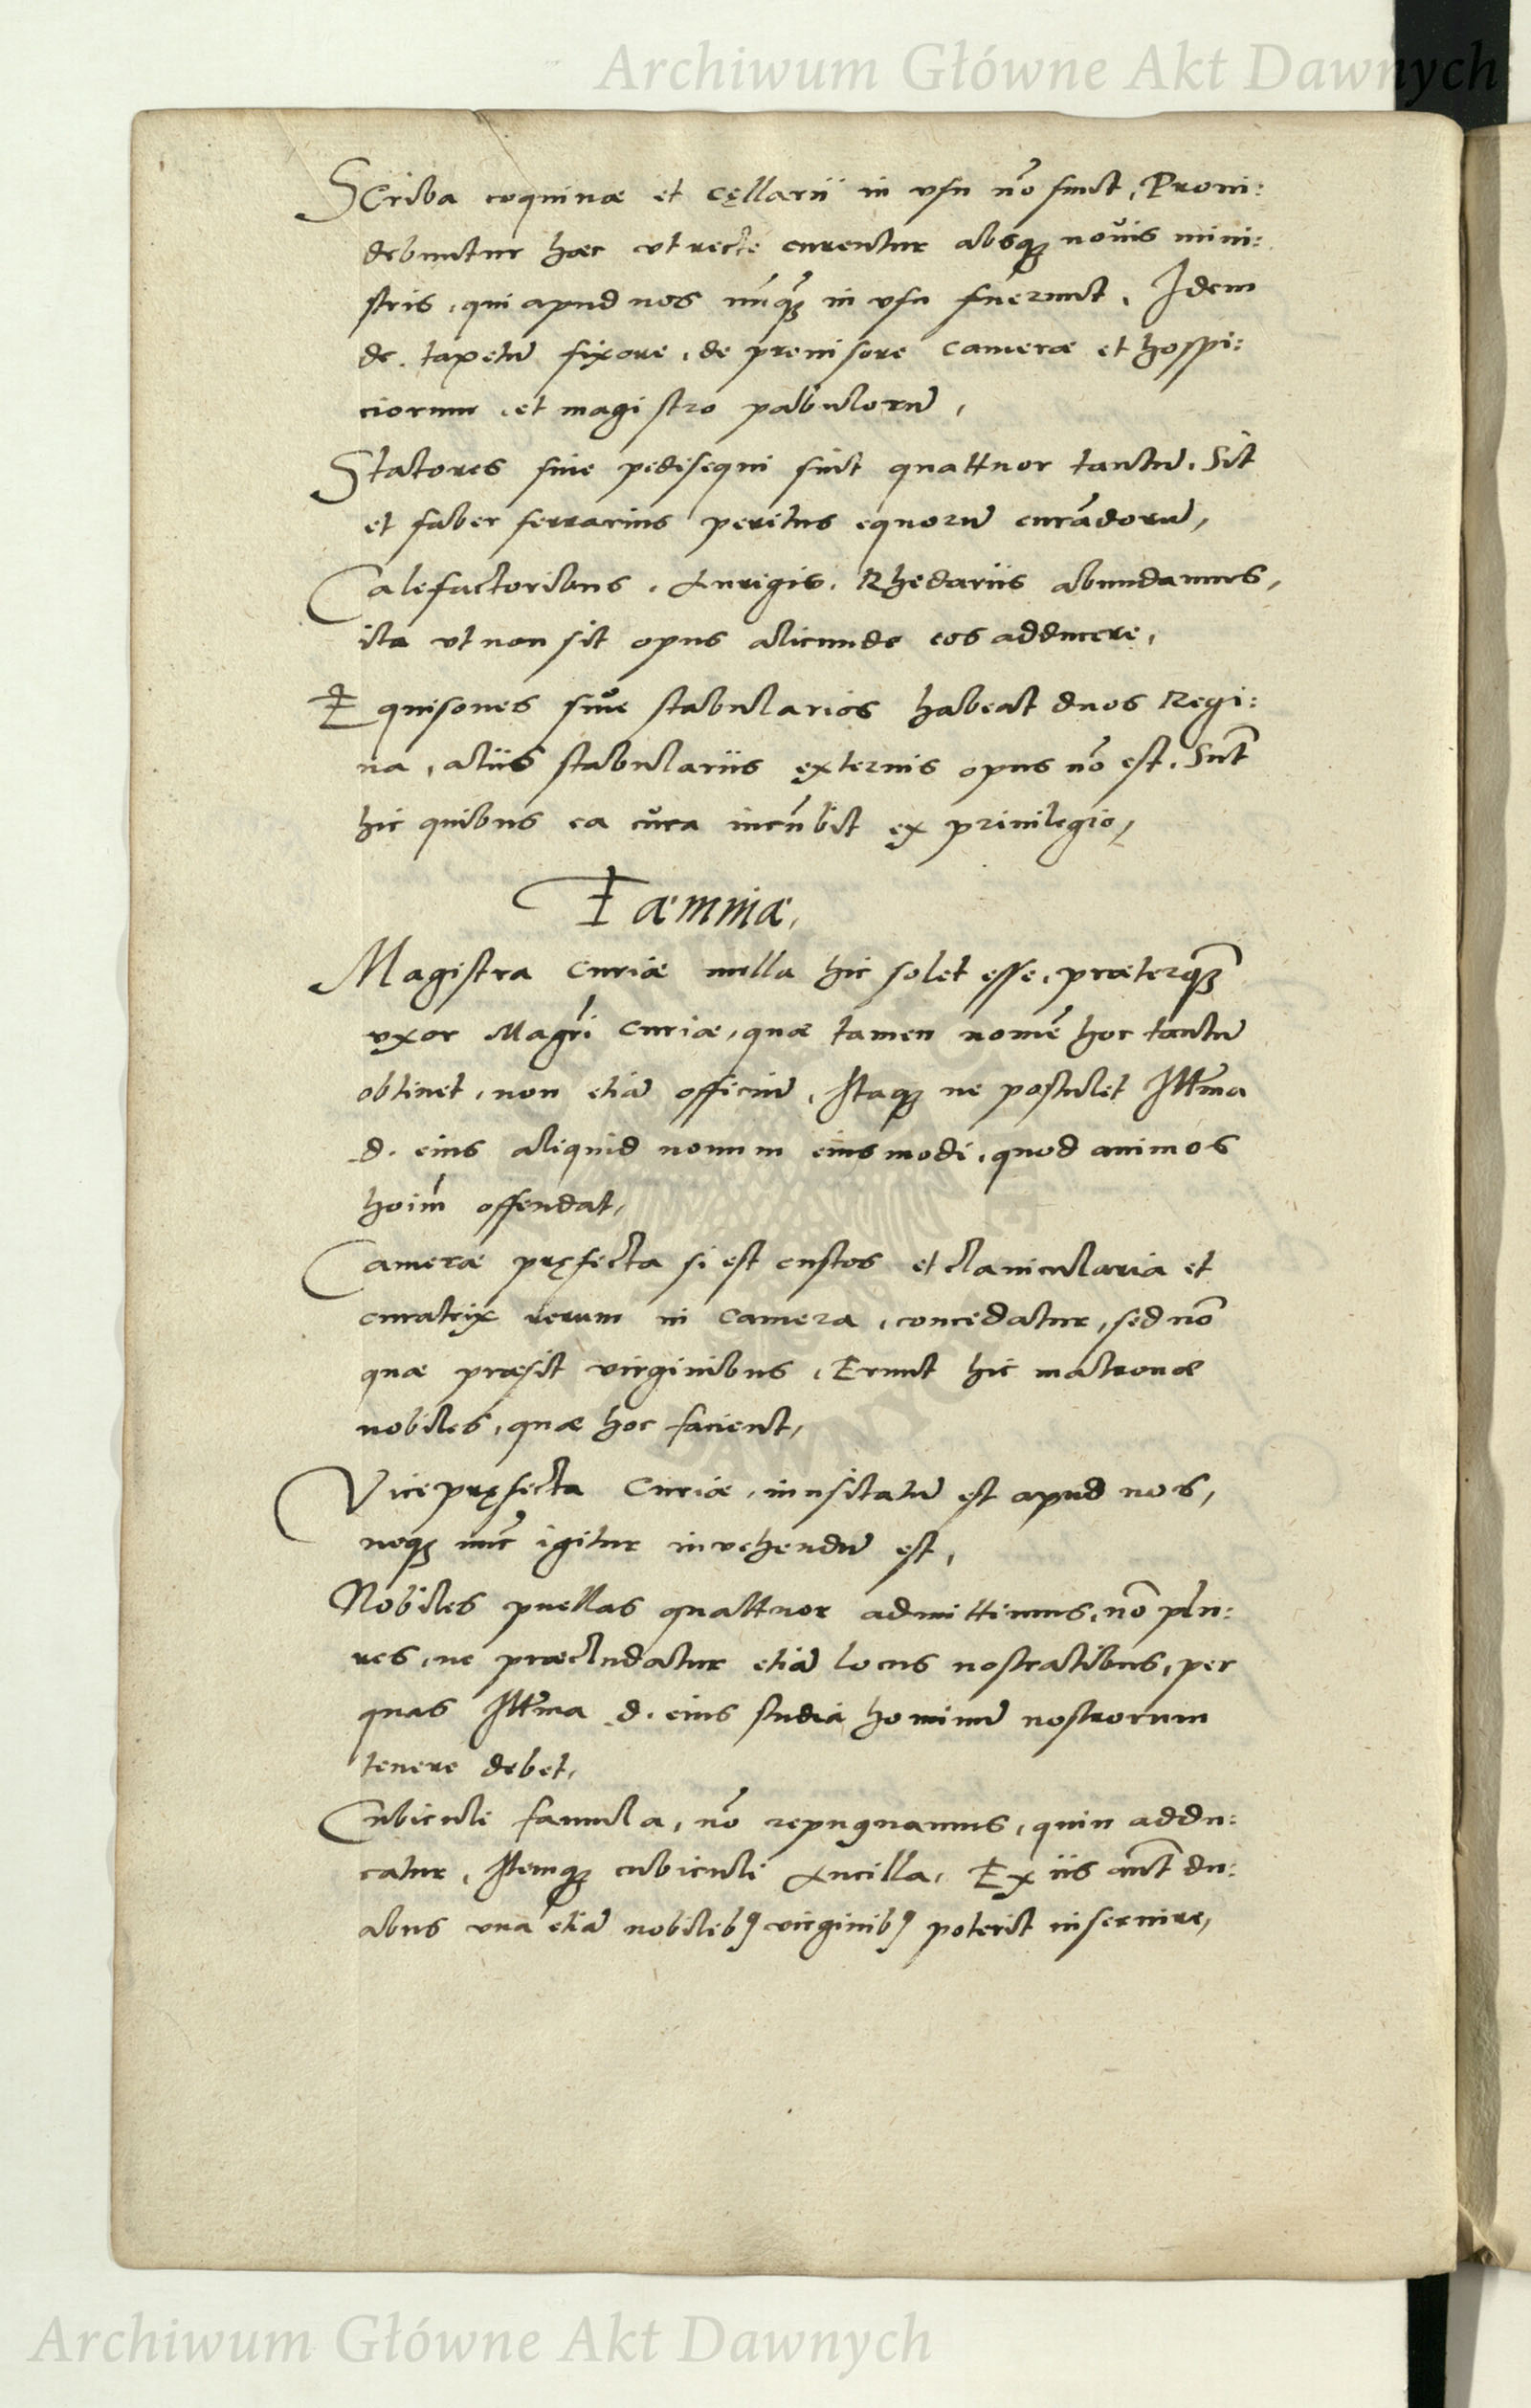 Archiwum Główne Akt Dawnych
Scriba coquinæ et cęllarii in vsu nõ sunt, Proui:
debuntur hæc vt recte curentur absqꝫ nouis mini:
stris, qui apud nos nũqꝫ in vsu fuerunt. Idem
de tapetũ fixore, de preuisore cameræ et hospi:
ciorum, et magistro pabulorũ,
Statores siue pedisequi sint quattuor tantũ. Sit
et faber ferrarius peritus equorũ curãdorũ,
Calefactoribus, Aurigis, Rhedariis abundamus,
ita vt non sit opus alicunde eos adducere,
Equisones siue stabularios habeat duos Regi:
na, aliis stabulariis externis opus nõ est. Sũt
hic quibus ea cura incũbit ex priuilegio,
Fæminæ,
Magistra Curiæ nulla hic solet esse, præterqꝫ
vxor Magri Curiæ, quæ tamen nomẽ hoc tantũ
obtinet, non etiã officiũ, Itaqꝫ ne postulet Illma
d. eius aliquid nouum eiusmodi, quod animos
hoim offendat,
Cameræ pręfecta si est custos et clauicularia et
curatrix rerum in Camera, concedatur, sed nõ
quæ præsit virginibus, Erunt hic matronæ
nobiles, quæ hoc facient,
Vicepręfecta Curiæ, inusitatũ est apud nos,
neqꝫ nũc igitur inuehendũ est,
Nobiles puellas quattuor admittimus, nõ plu:
res, ne præcludatur etiã locus nostratibus, per
quas Illma d. eius studia hominũ nostrorum
tenere debet,
Cubiculi famula, nõ repugnamus, quin addu:
catur, Itemqꝫ cubiculi Ancilla, Ex iis aũt du:
abus vna etiã nobilibꝰ virginibꝰ poterit inseruire,
Archiwum Główne Akt Dawnych